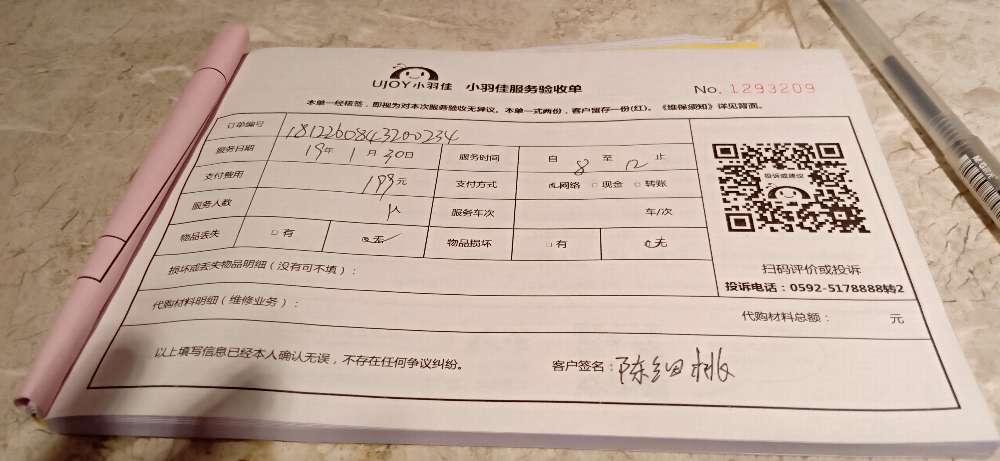 UJOY小羽佳 小羽佳服务验收单 No. 1293209
本单一经核签，即视为对本次服务验收无异议。本单一式两份，客户留存一份(红)。《维保须知》详见背面。
订单编号 1812260843200234
服务日期 19年 1月 30日 服务时间 自 8 至 12 止
支付费用 199元 支付方式 网络 现金 转账
服务人数 服务车次 车/次
物品丢失 有 无 物品损坏 有 无
投诉或建议
扫码评价或投诉
投诉电话：0592-5178888转2
损坏或丢失物品明细（没有可不填）：
代购材料明细（维修业务）： 代购材料总额： 元
以上填写信息已经本人确认无误，不存在任何争议纠纷。 客户签名：陈细桃